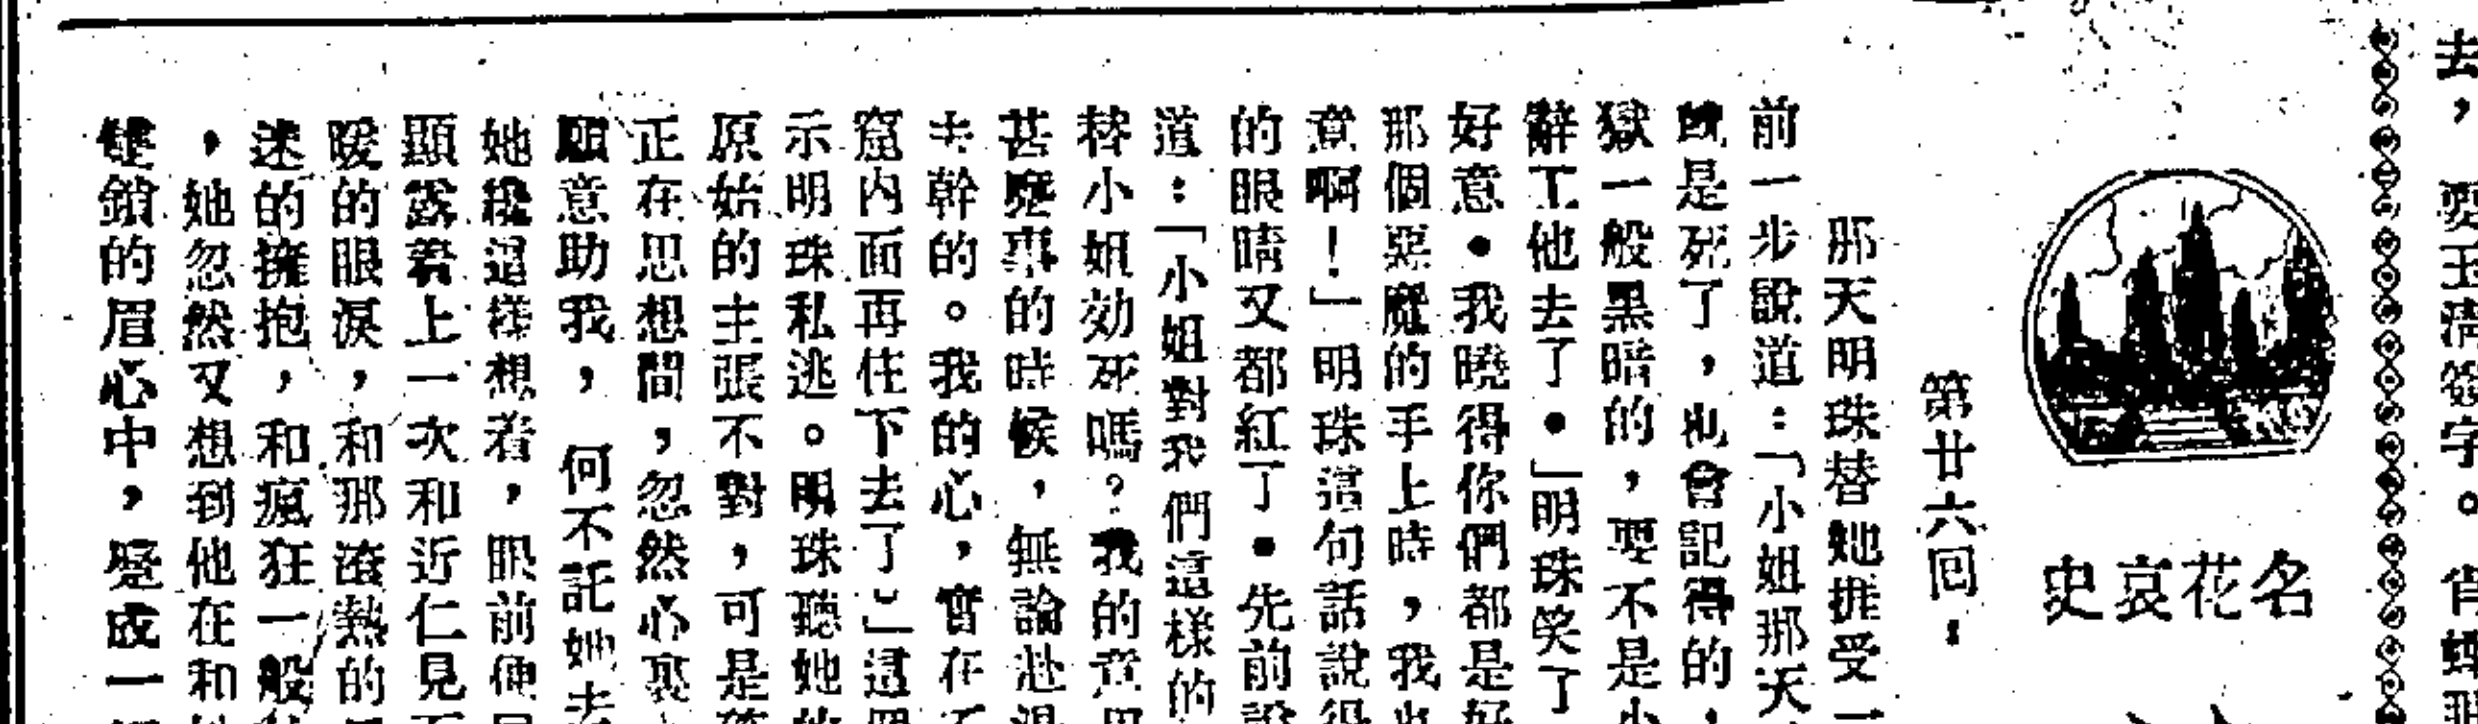 去，要玉清簽字。
名花哀史
第廿六回：
那天明珠替她捱受一
前一步說道：「小姐那天
就是死了，也會記得的，
獄一般黑暗的，要不是小
辭工他去了。」明珠笑了
好意。我曉得你們都是好
那個惡魔的手上時，我也
意啊！」明珠這句話說得
的眼睛又都紅了。先前說
道：「小姐對我們這樣的
替小姐効死嗎？我的意思
甚麼事的時候，無論赴湯
去幹的。我的心，實在不
窟內面再住下去了。」這
示明珠私逃。明珠聽她的
原始的主張不對，可是
正在思想間，忽然心裏
願意助我，何不託她去
她這樣想着，眼前便
顯露着上一次和近仁見
暖的眼淚，和那滾熱的
迷的擁抱，和瘋狂一般
，她忽然又想到他在和
鎖的眉心中，變成一